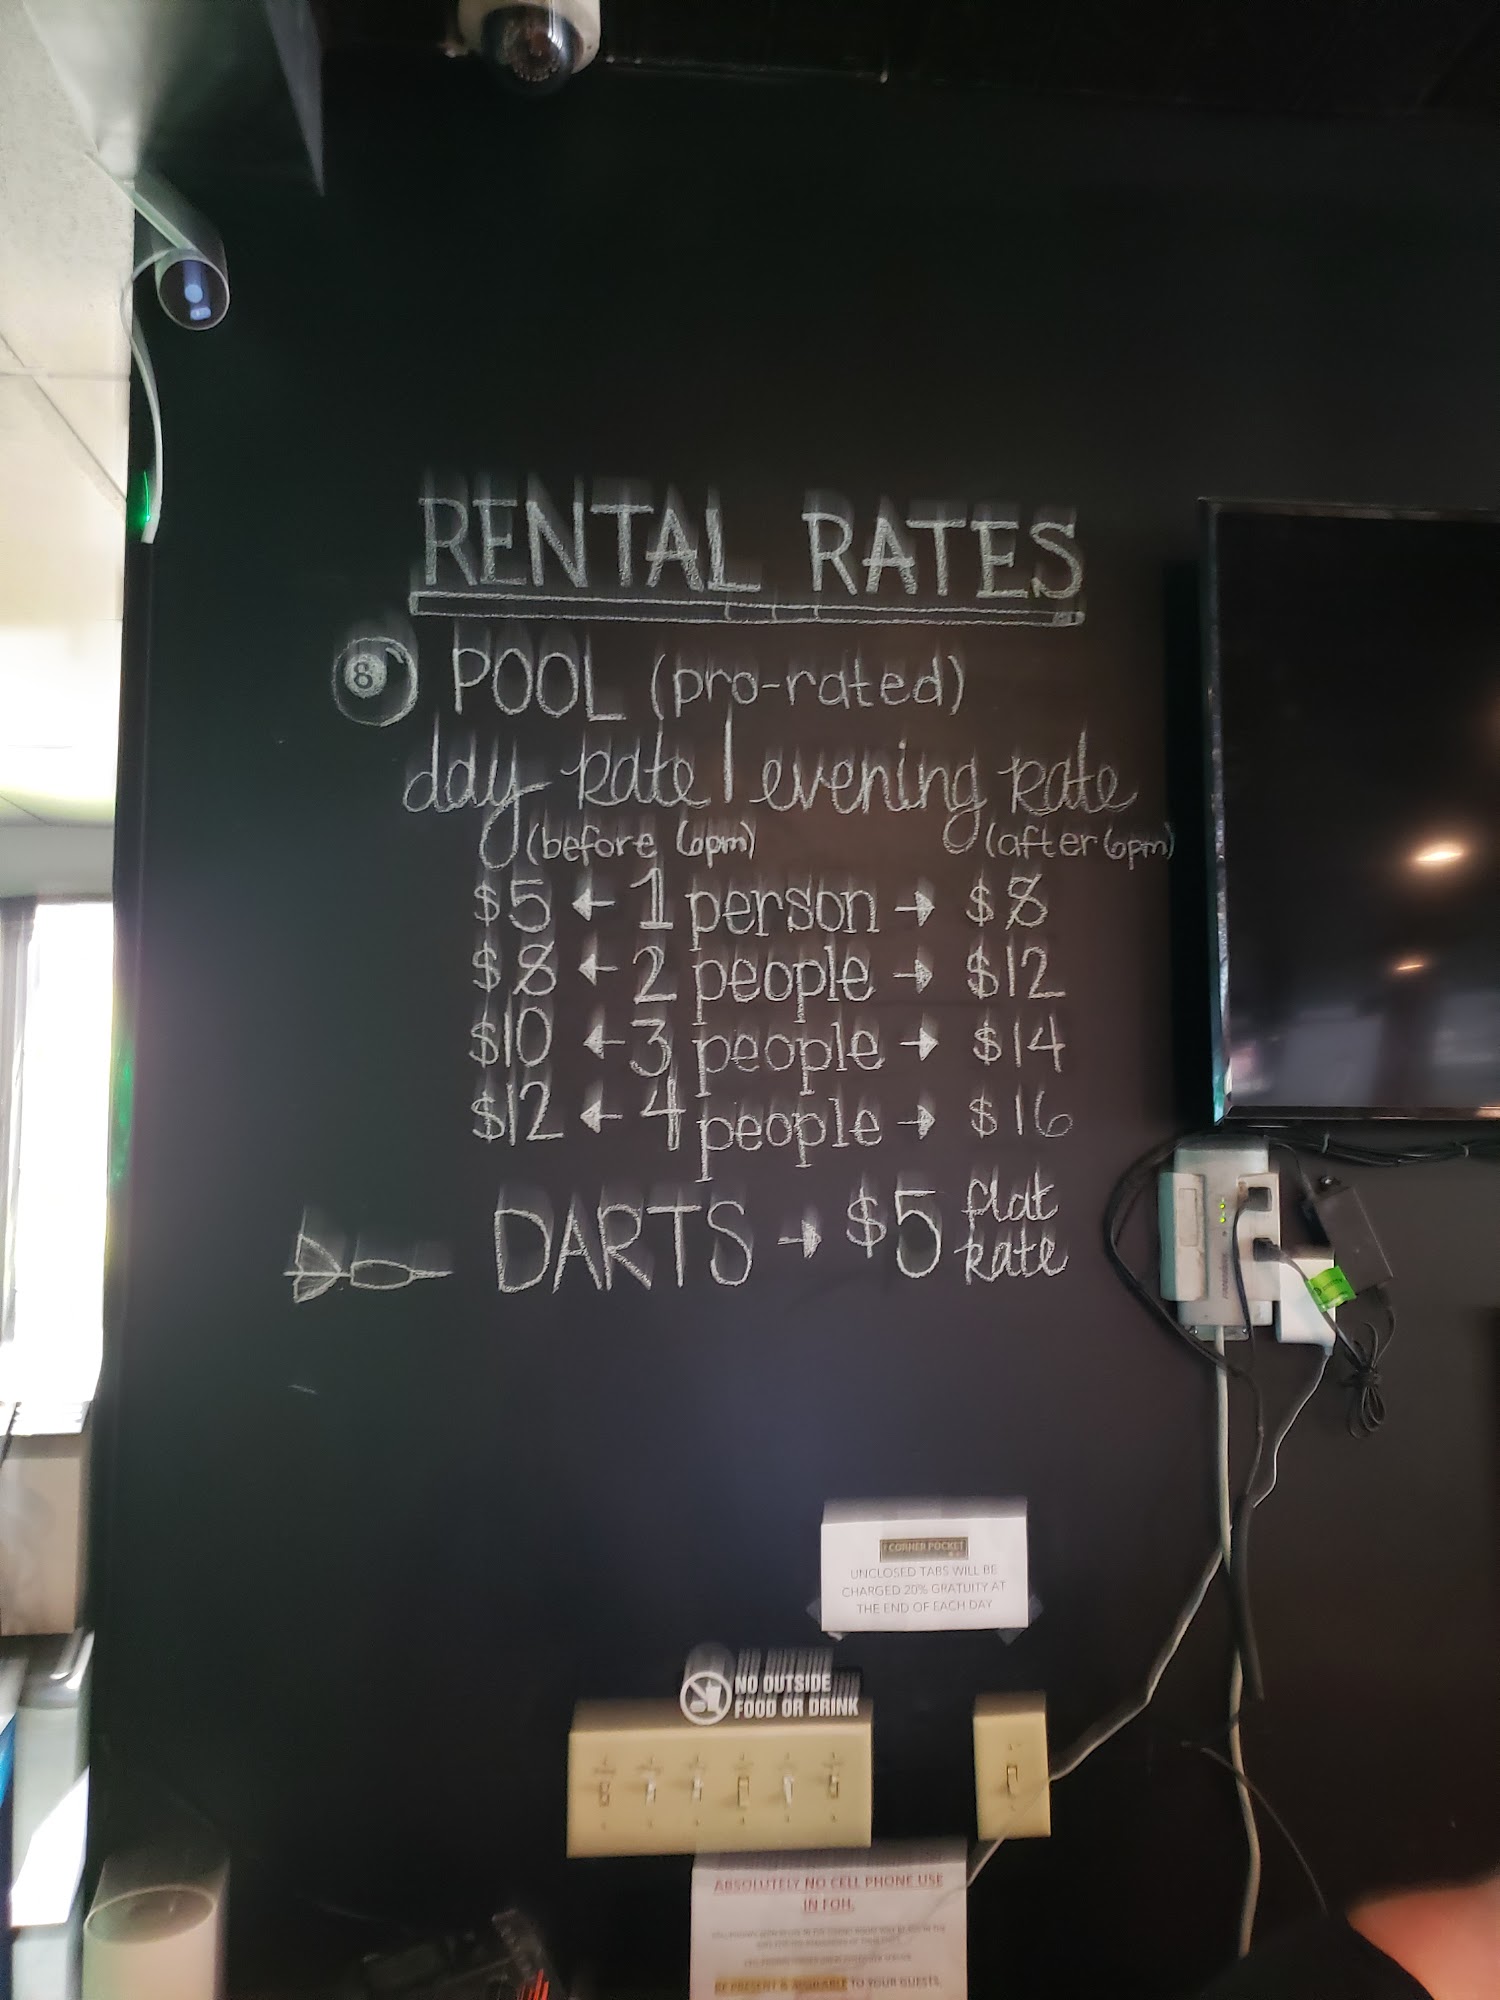 RENTAL RATES
8 POOL (pro-rated)
day rate | evening rate
(before 6pm) (after 6pm)
$5 ← 1 person → $8
$8 ← 2 people → $12
$10 ← 3 people → $14
$12 ← 4 people → $16
DARTS → $5 flat
rate
CORNER POCKET
UNCLOSED TABS WILL BE
CHARGED 20% GRATUITY AT
THE END OF EACH DAY
NO OUTSIDE
FOOD OR DRINK
ABSOLUTELY NO CELL PHONE USE
IN FOH.
BE PRESENT & AVAILABLE TO YOUR GUESTS.